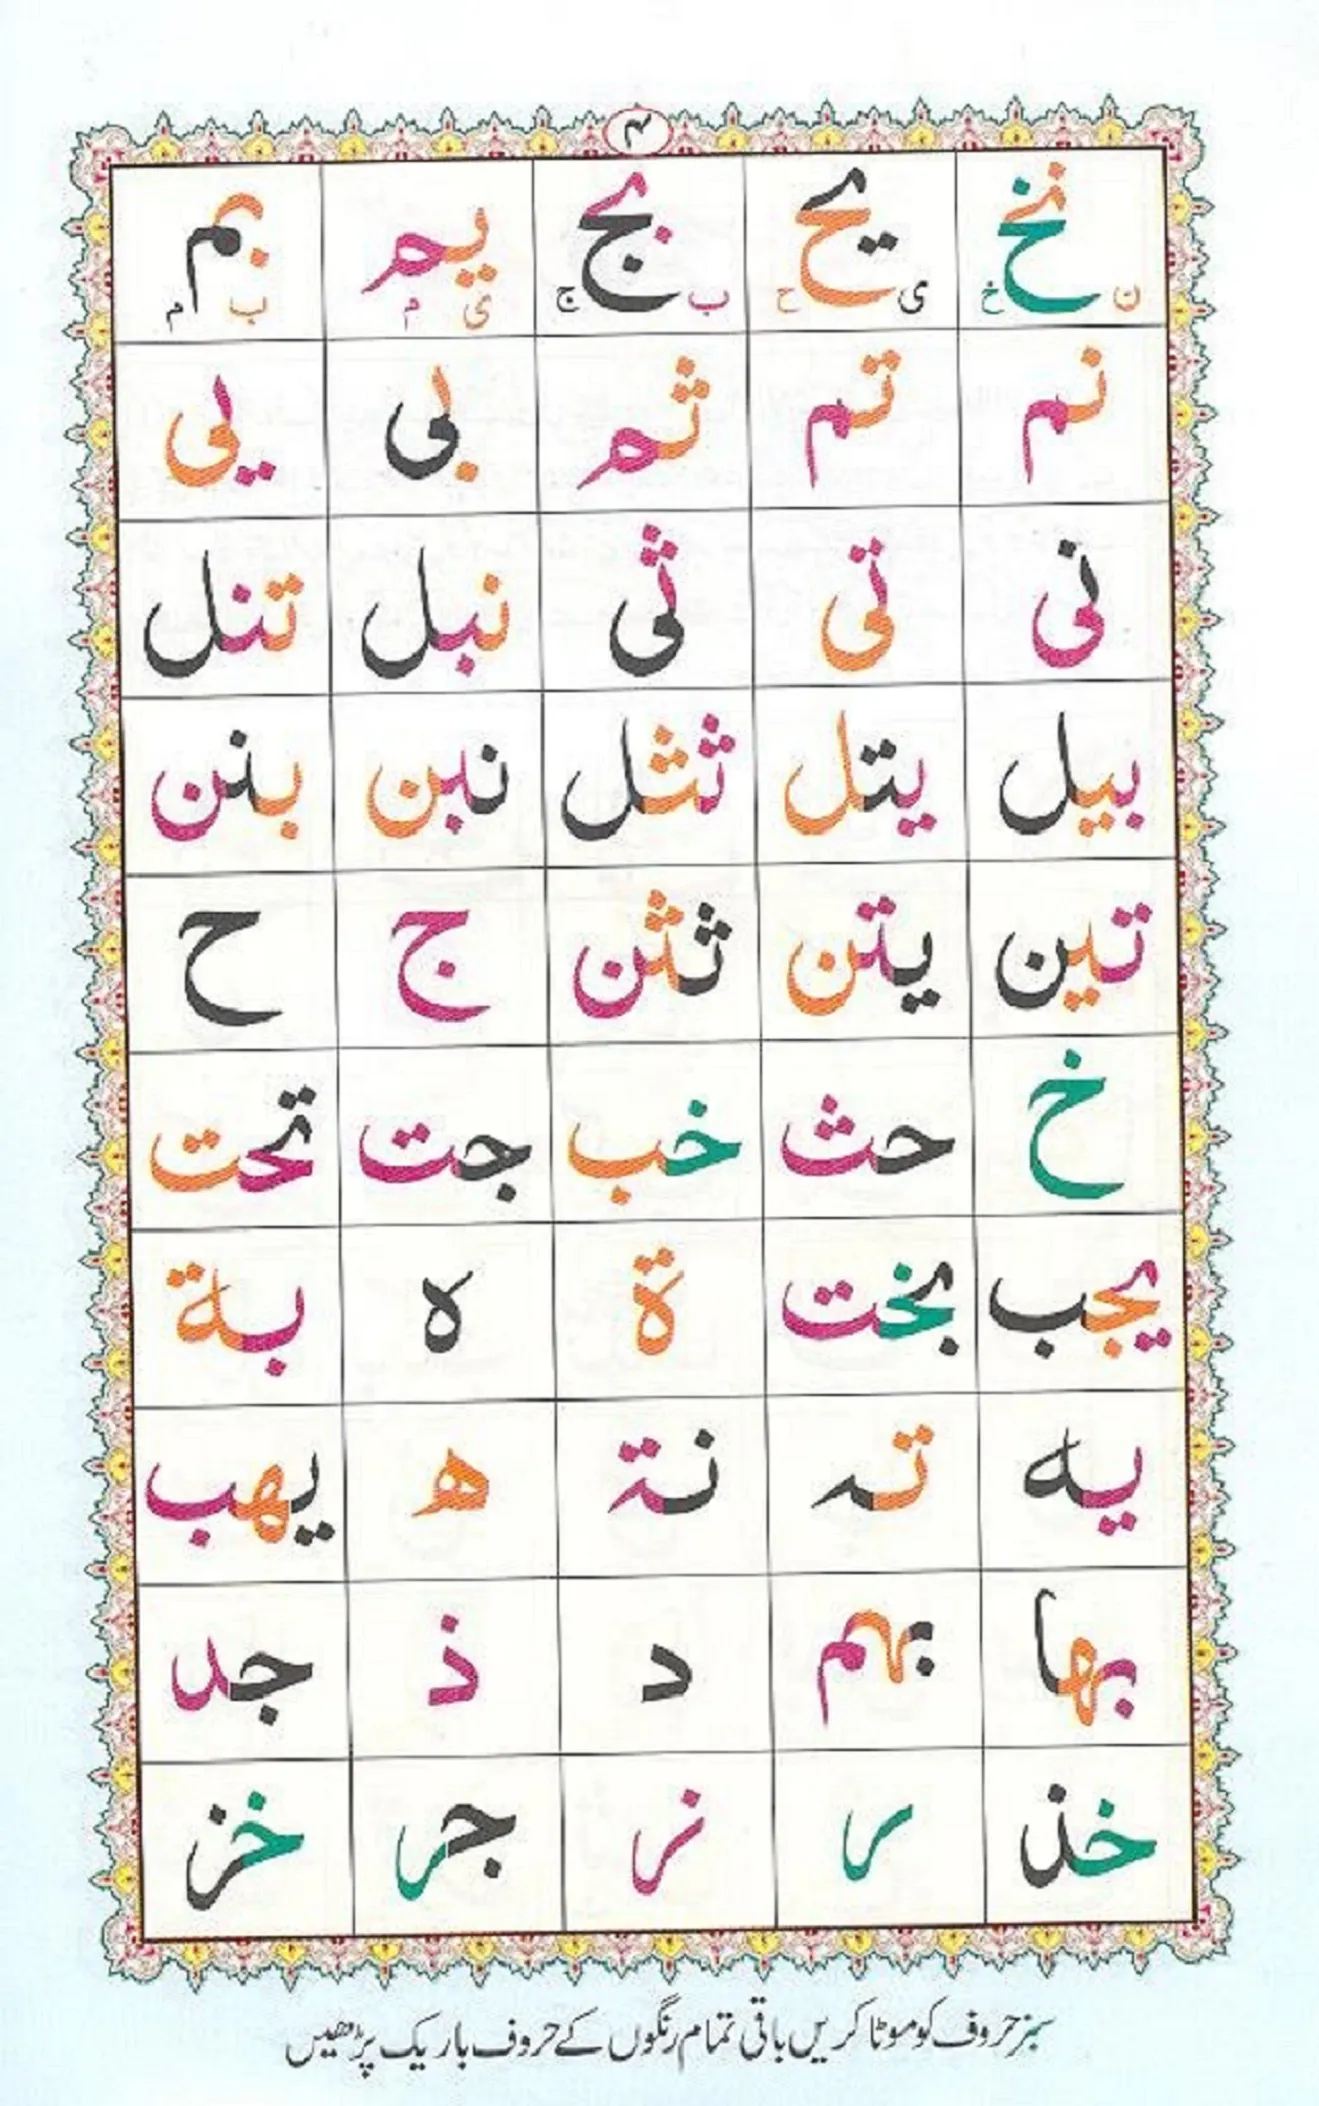 ۴
نخ یح بج یم بم
ن خ ی ح ب ج ی م ب م
نم تم ثم بی یی
نی تی ثی نبل تنل
بیل یتل ثثل نبن بنن
تین یتن ثثن ج ح
خ حث خب جت تحت
یجب بخت ة ه بة
یه ته نة ھ یهب
بها بهم د ذ جد
خذ ر ز جر خز
سبز حروف کو موٹا کریں باقی تمام رنگوں کے حروف باریک پڑھیں